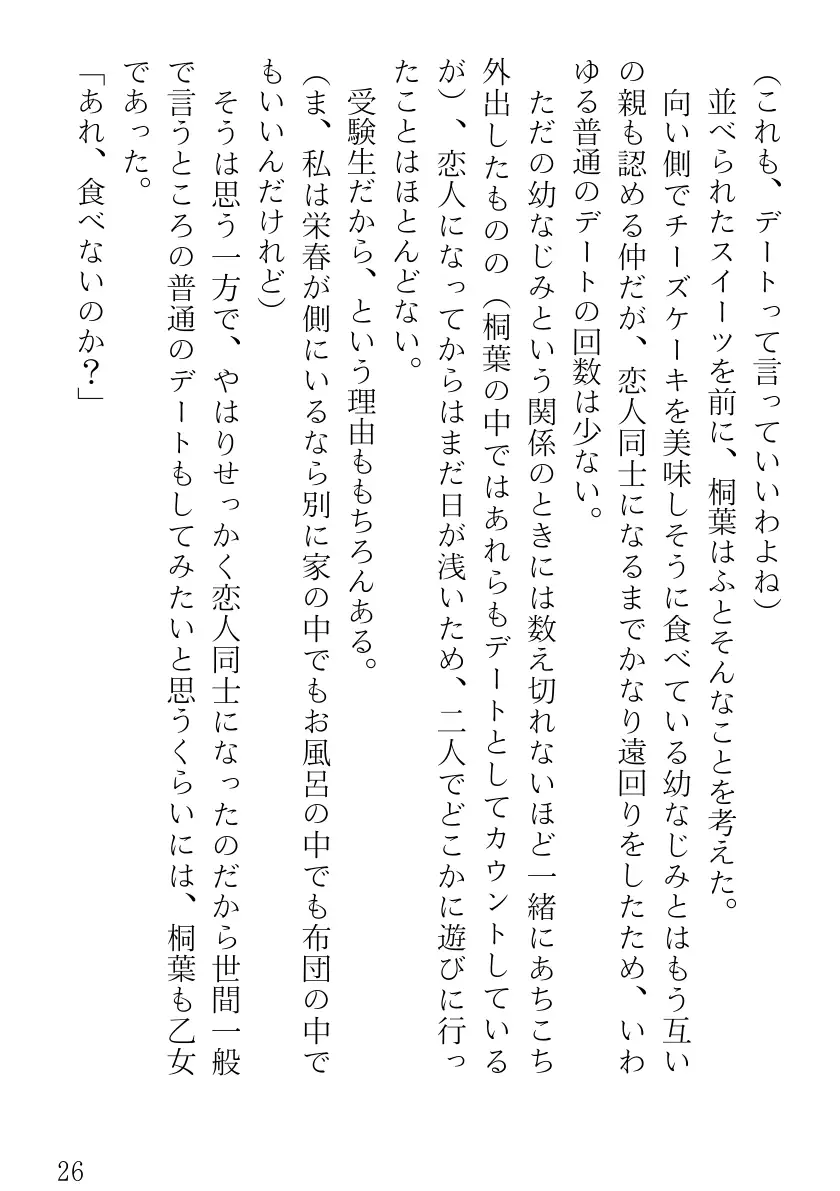 (これも、デートって言っていいわよね)
並べられたスイーツを前に、桐葉はふとそんなことを考えた。
向い側でチーズケーキを美味しそうに食べている幼なじみとはもう互い
の親も認める仲だが、恋人同士になるまでかなり遠回りをしたため、いわ
ゆる普通のデートの回数は少ない。
ただの幼なじみという関係のときには数え切れないほど一緒にあちこち
外出したものの（桐葉の中ではあれらもデートとしてカウントしている
が）、恋人になってからはまだ日が浅いため、二人でどこかに遊びに行っ
たことはほとんどない。
受験生だから、という理由ももちろんある。
(ま、私は栄春が側にいるなら別に家の中でもお風呂の中でも布団の中で
もいいんだけれど)
そうは思う一方で、やはりせっかく恋人同士になったのだから世間一般
で言うところの普通のデートもしてみたいと思うくらいには、桐葉も乙女
であった。
「あれ、食べないのか？」
26